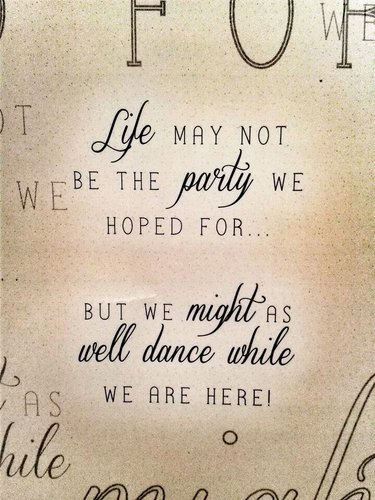 FOR
WE
Life MAY NOT
OT
BE THE party WE
WE
HOPED FOR...
BUT WE might AS
well dance while
AS
WE ARE HERE!
hile